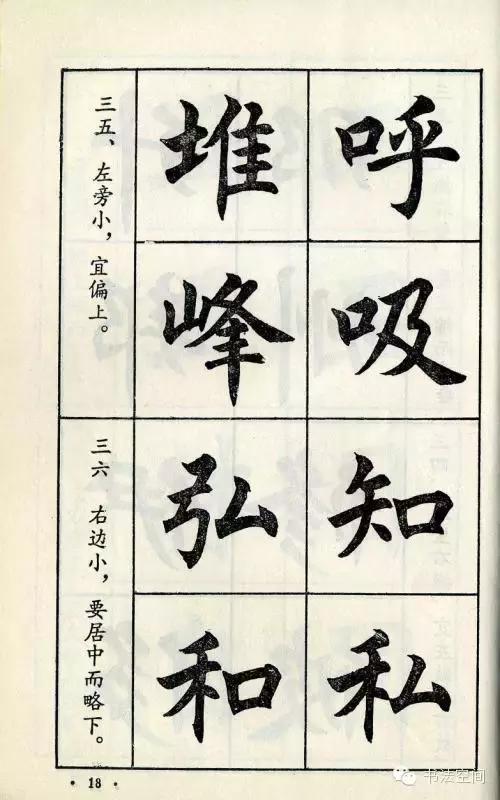 呼吸
堆峰
三五、左旁小，宜偏上。
知私
弘和
三六 右边小，要居中而略下。
·18·
书法空间